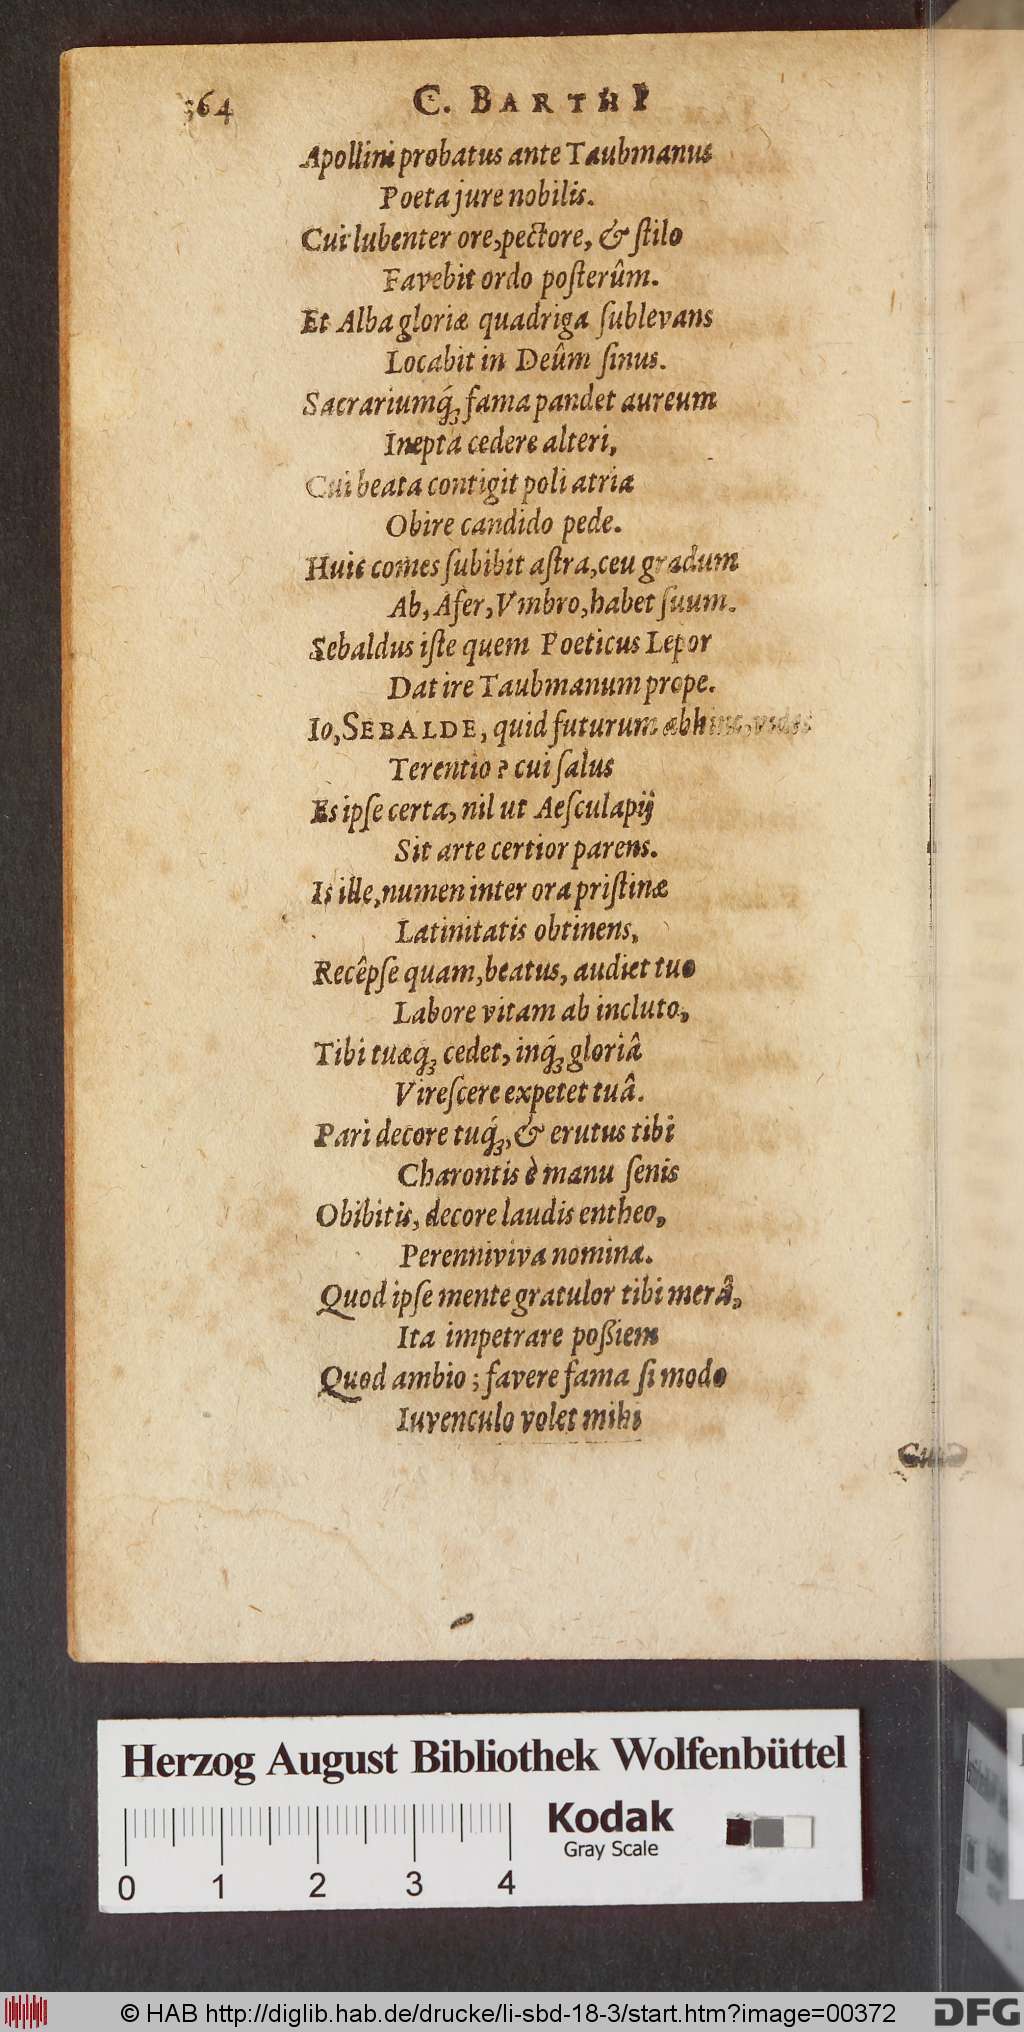 364
C. BARTHI
Apollini probatus ante Taubmanus
Poeta jure nobilis.
Cui lubenter ore, pectore, & ſtilo
Favebit ordo poſterûm.
Et Alba gloriæ quadriga ſublevans
Locabit in Deûm ſinus.
Sacrariumq́ꝫ fama pandet aureum
Inepta cedere alteri,
Cui beata contigit poli atria
Obire candido pede.
Huic comes ſubibit aſtra, ceu gradum
Ab, Afer, Vmbro, habet ſuum.
Sebaldus iſte quem Poeticus Lepor
Dat ire Taubmanum prope.
Io, SEBALDE, quid futurum abhinc, vides
Terentio? cui ſalus
Es ipſe certa, nil ut Aeſculapij
Sit arte certior parens.
Is ille, numen inter ora priſtinæ
Latinitatis obtinens,
Recêpſe quam, beatus, audiet tuo
Labore vitam ab incluto,
Tibi tuæq́ꝫ cedet, inq́ꝫ gloriâ
Vireſcere expetet tuâ.
Pari decore tuq́ꝫ, & erutus tibi
Charontis è manu ſenis
Obibitis, decore laudis entheo,
Perenniviva nomina.
Quod ipſe mente gratulor tibi merâ,
Ita impetrare poßiem
Quod ambio; favere fama ſi modo
Iuvenculo volet mihi
Herzog August Bibliothek Wolfenbüttel
Kodak
Gray Scale
0 1 2 3 4
© HAB http://diglib.hab.de/drucke/li-sbd-18-3/start.htm?image=00372
DFG